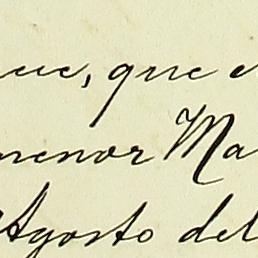 que
menor Ma
Agosto del